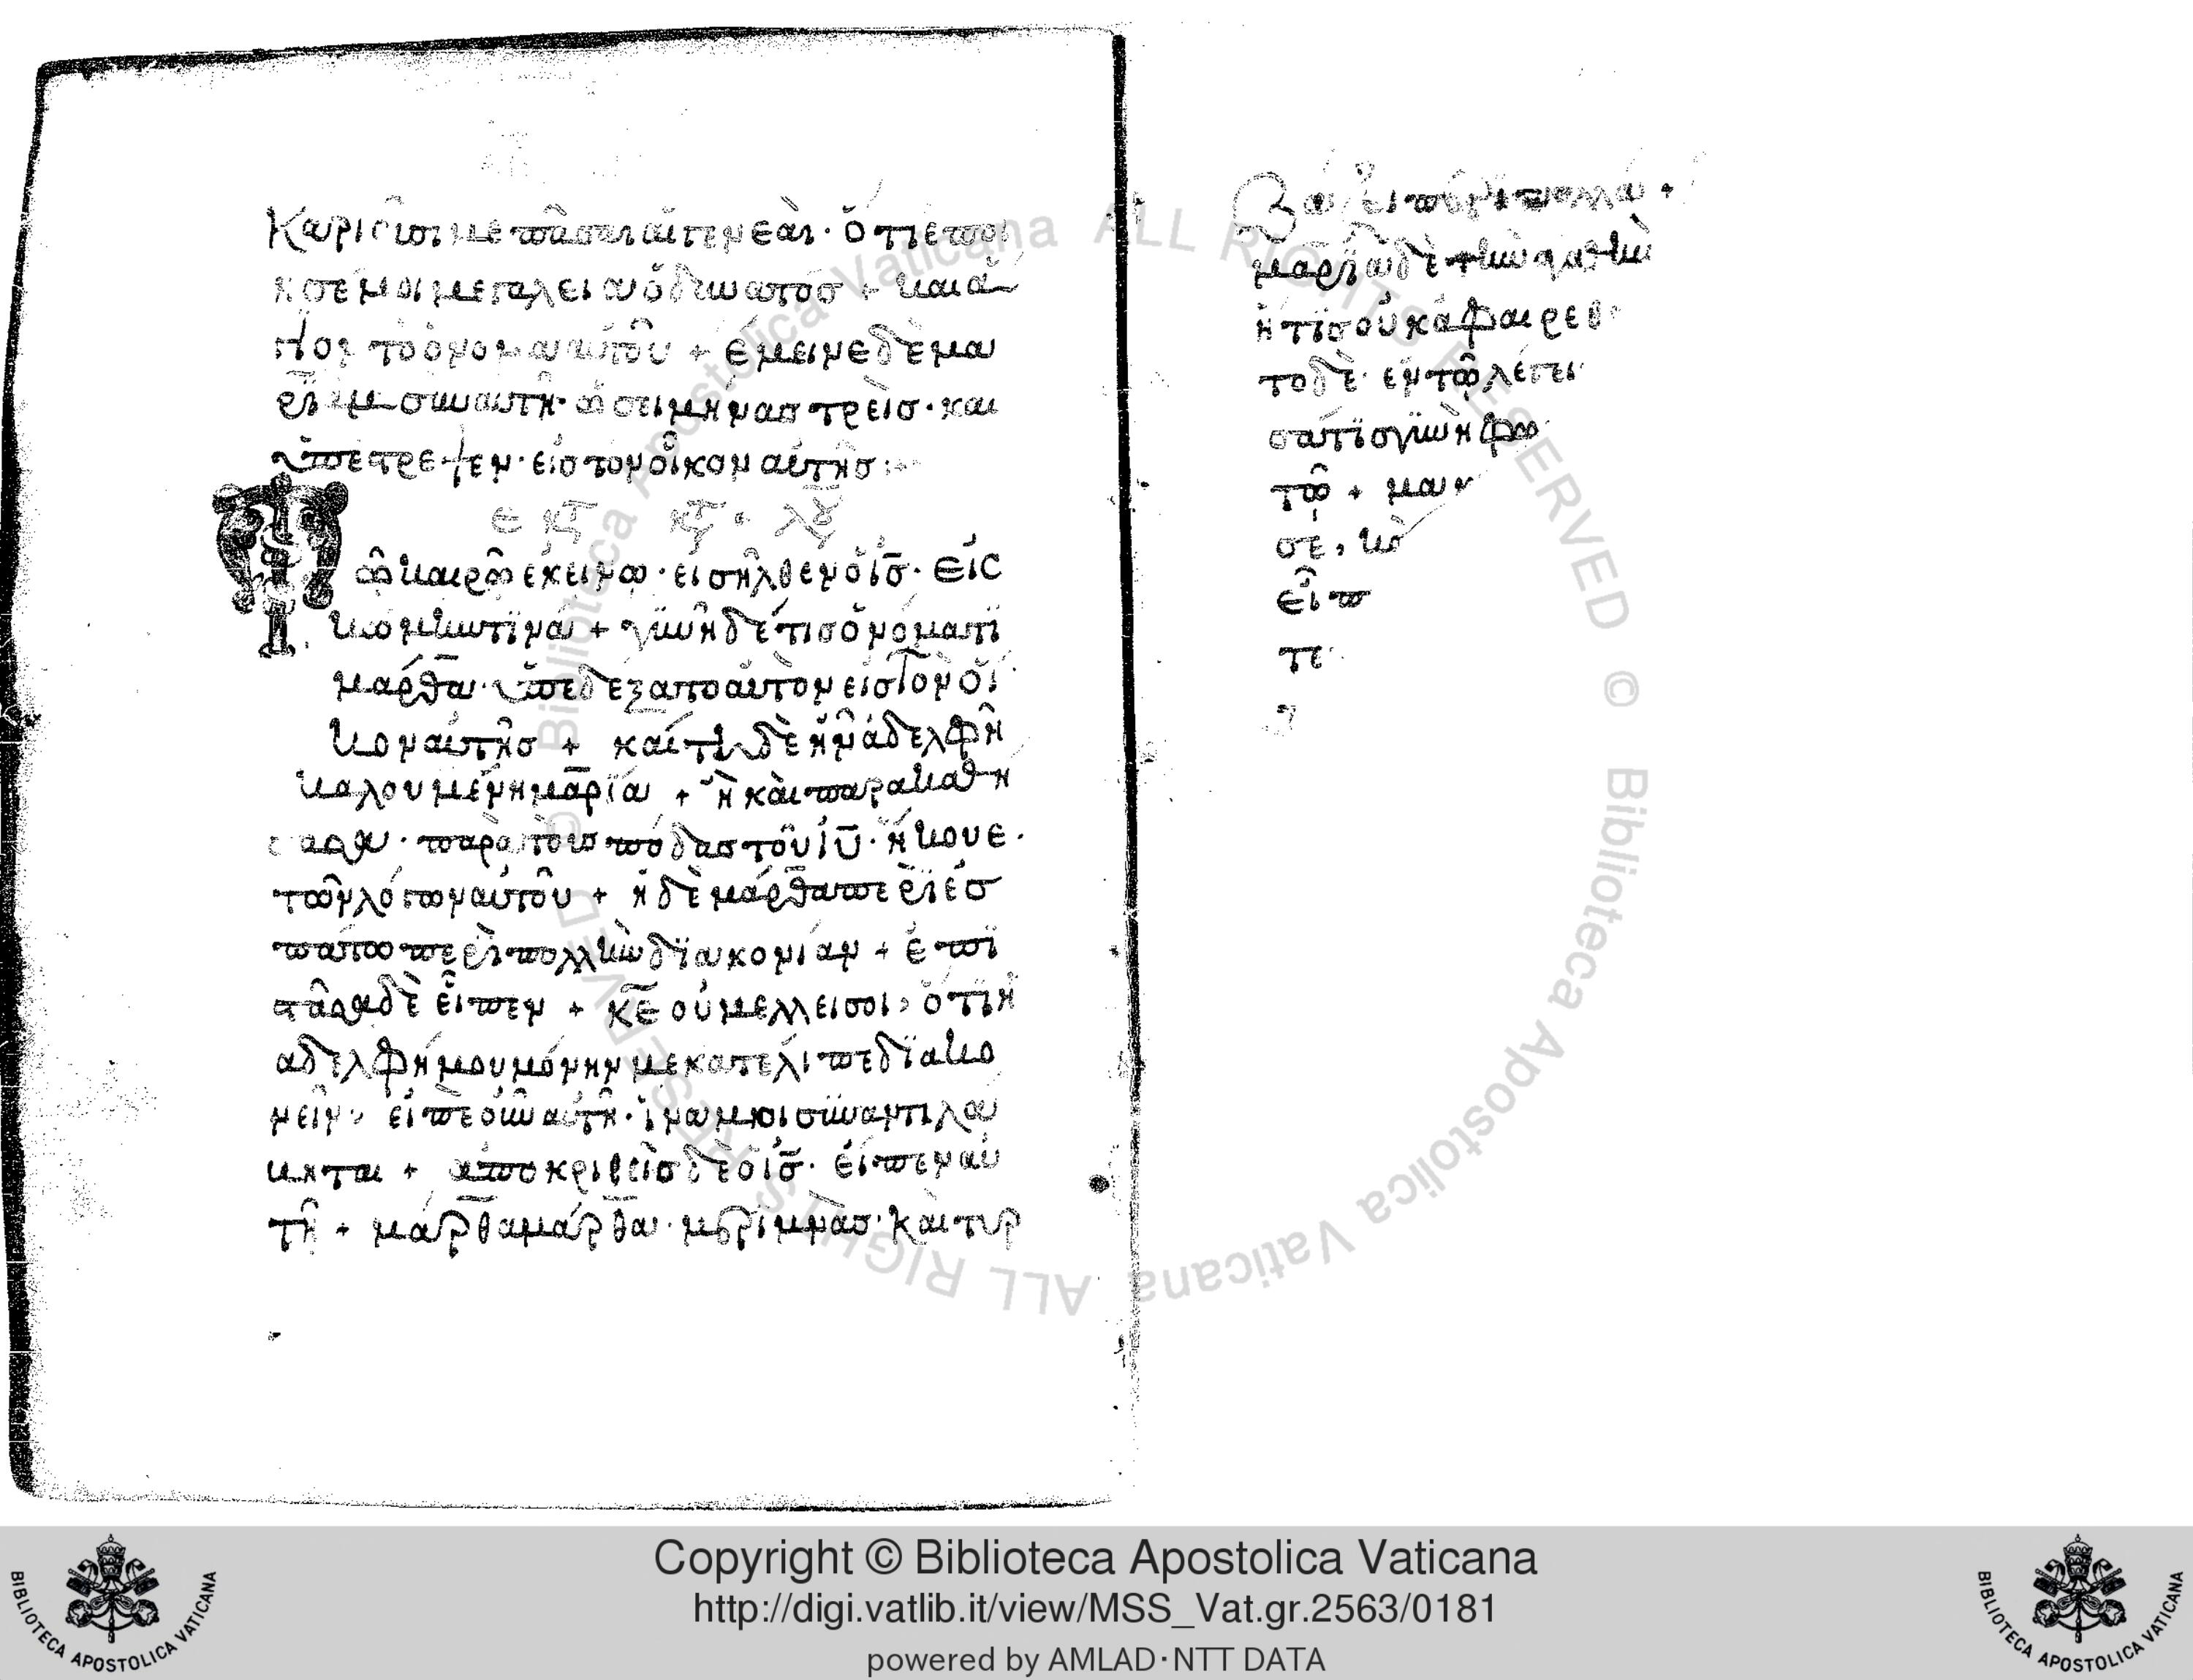 καριοῦσι με πᾶσαι αἱ γενεὰι· ὅτι ἐποί
ησέ μοι μεγαλεῖα ὁ δυνατὸσ + και ἅ
γιον τὸ ὄνομα αὐτοῦ + ἔμεινε δὲ μα
ρϊὰμ συν αυτῆ· ὡσει μῆνασ τρεῖσ· και
ὑπέστρεψεν· εἰσ τὸν οἶκον αὑτῆσ:
Τῶ καιρῶ ἐκείνω· εἰσῆλθεν ὁ ἰσ̅· εἰς
κώμην τϊνά + γυνὴ δέ τισ ὀνόματϊ
μάρθα· ὑπεδέξατο αὐτὸν εἰσ τὸν οἶ
κον αὑτῆσ + καὶ τῆδε ἦν ἀδελφὴ
καλουμένη μαρϊα + ἣ καὶ παρακαθή
σασα· παρὰ τοὺσ πόδασ τοῦ ἰυ̅· ἤκουε·
τῶν λόγων αὐτοῦ + ἡ δὲ μάρθα περϊεσ
πάτο περϊ πολλὴν δϊακονίαν + ἐπϊ
στᾶσα δὲ εἶπεν + κε̅ οὐ μέλλει σοι, ὅτϊ ἡ
αδελφή μου μόνην με κατέλιπε δϊακο
νεῖν, εἰπὲ οὖν αὐτῆ· ἵνα μοι συναντιλά
βηται + ἀποκριθεὶσ δὲ ὁ ἰσ̅· εἶπεν αὐ
τῆ + μάρθα μάρθα· μεριμνᾶσ· καὶ τυρ
βάζει περὶ πολλά +
μαρϊα δὲ τὴν ἀγαθὴν
ἥτϊσ οὐκ ἀφαιρεθ
το δὲ ἐν τῶ λέγει
σά τϊσ γυνὴ φω
τῶ + μακ
σε, κὸ
εἶπ
τε
Copyright © Biblioteca Apostolica Vaticana
http://digi.vatlib.it/view/MSS_Vat.gr.2563/0181
powered by AMLAD·NTT DATA
BIBLIOTECA APOSTOLICA VATICANA
BIBLIOTECA APOSTOLICA VATICANA
© Biblioteca Apostolica Vaticana ALL RIGHTS RESERVED © Biblioteca Apostolica Vaticana ALL RIGHTS RESERVED